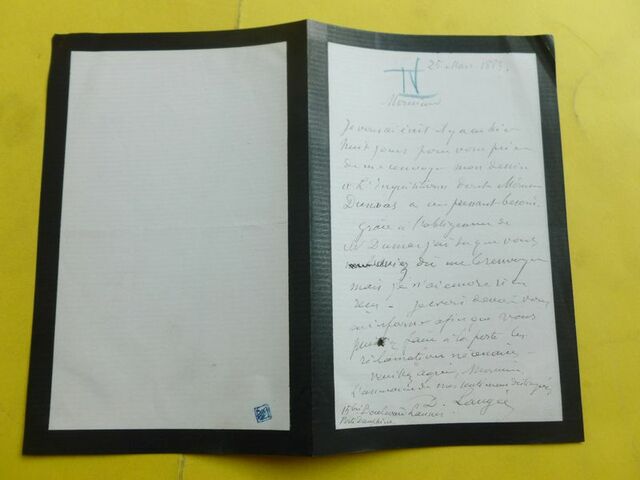 25 Mars 1883.
IV
Monsieur
Je vous ai écrit il y a
huit jours pour vous prier
de me renvoyer mon dessin
de L'Inquisition dont Monsieur
Dumas a un pressant besoin.
Grâce à l'obligeance de
Mr Dumas j'ai su que vous
dû me le renvoyer
mais je n'ai encore rien
reçu - Je crois devoir vous
en informer afin que vous
faire à la poste les
réclamations nécessaires
Veuillez agréer, Monsieur,
L'assurance de mes sentiments distingués
D. Laugée
15 bis Boulevard Lannes.
Porte Dauphine.